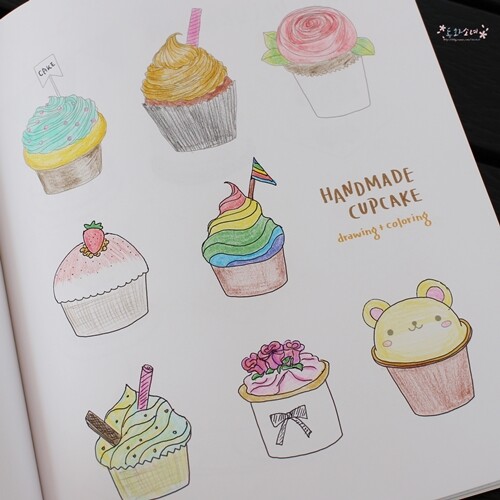 CAKE
HANDMADE
CUPCAKE
drawing + coloring